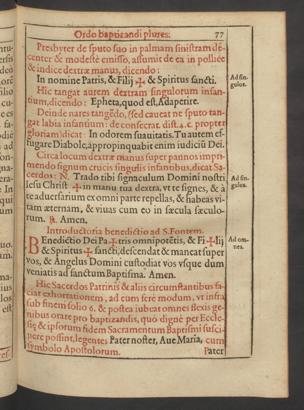 Ordo baptizandi plures. 77
Presbyter de sputo suo in palmam sinistram de-
center & modestè emisso, assumit de ea in pollice
& indice dextræ manus, dicendo:
In nomine Patris, & Filij ✠ & Spiritus sancti.
Hic tangat aurem dextram singulorum infan-
tium, dicendo: Epheta, quod est, Adaperire.
Deinde nares tangẽdo, (sed caueat ne sputo tan-
gat labia infantium: de consecrat. dist. 4. c. propter
gloriam) dicat: In odorem suauitatis. Tu autem ef-
fugare Diabole, appropinquabit enim iudiciũ Dei.
Circa locum dextræ manus super pannos impri-
mendo signum crucis singulis infantibus, dicat Sa-
cerdos: N. Trado tibi signaculum Domini nostri
Iesu Christi ✠ in manu tua dextra, vt te signes, & à
te aduersarium ex omni parte repellas, & habeas vi-
tam æternam, & viuas cum eo in sæcula sæculo-
rum. ℟. Amen.
Introductoria benedictio ad S. Fontem.
Benedictio Dei Pa✠tris omnipotẽtis, & Fi✠lij
& Spiritus ✠ sancti, descendat & maneat super
vos, & Angelus Domini custodiat vos vsque dum
veniatis ad sanctum Baptisma. Amen.
Hic Sacerdos Patrinis & aliis circumstantibus fa-
ciat exhortationem, ad cum ferè modum, vt infra
sub finem folio 6. & postea iubeat omnes flexis ge-
nibus orare pro baptizandis, quò dignè per Eccle-
siæ & ipsorum fidem Sacramentum Baptismi susci-
pere possint, legentes Pater noster, Aue Maria, cum
symbolo Apostolorum.
Pater
Ad sin-
gulos.
Ad sin-
gulos.
Ad om-
nes.